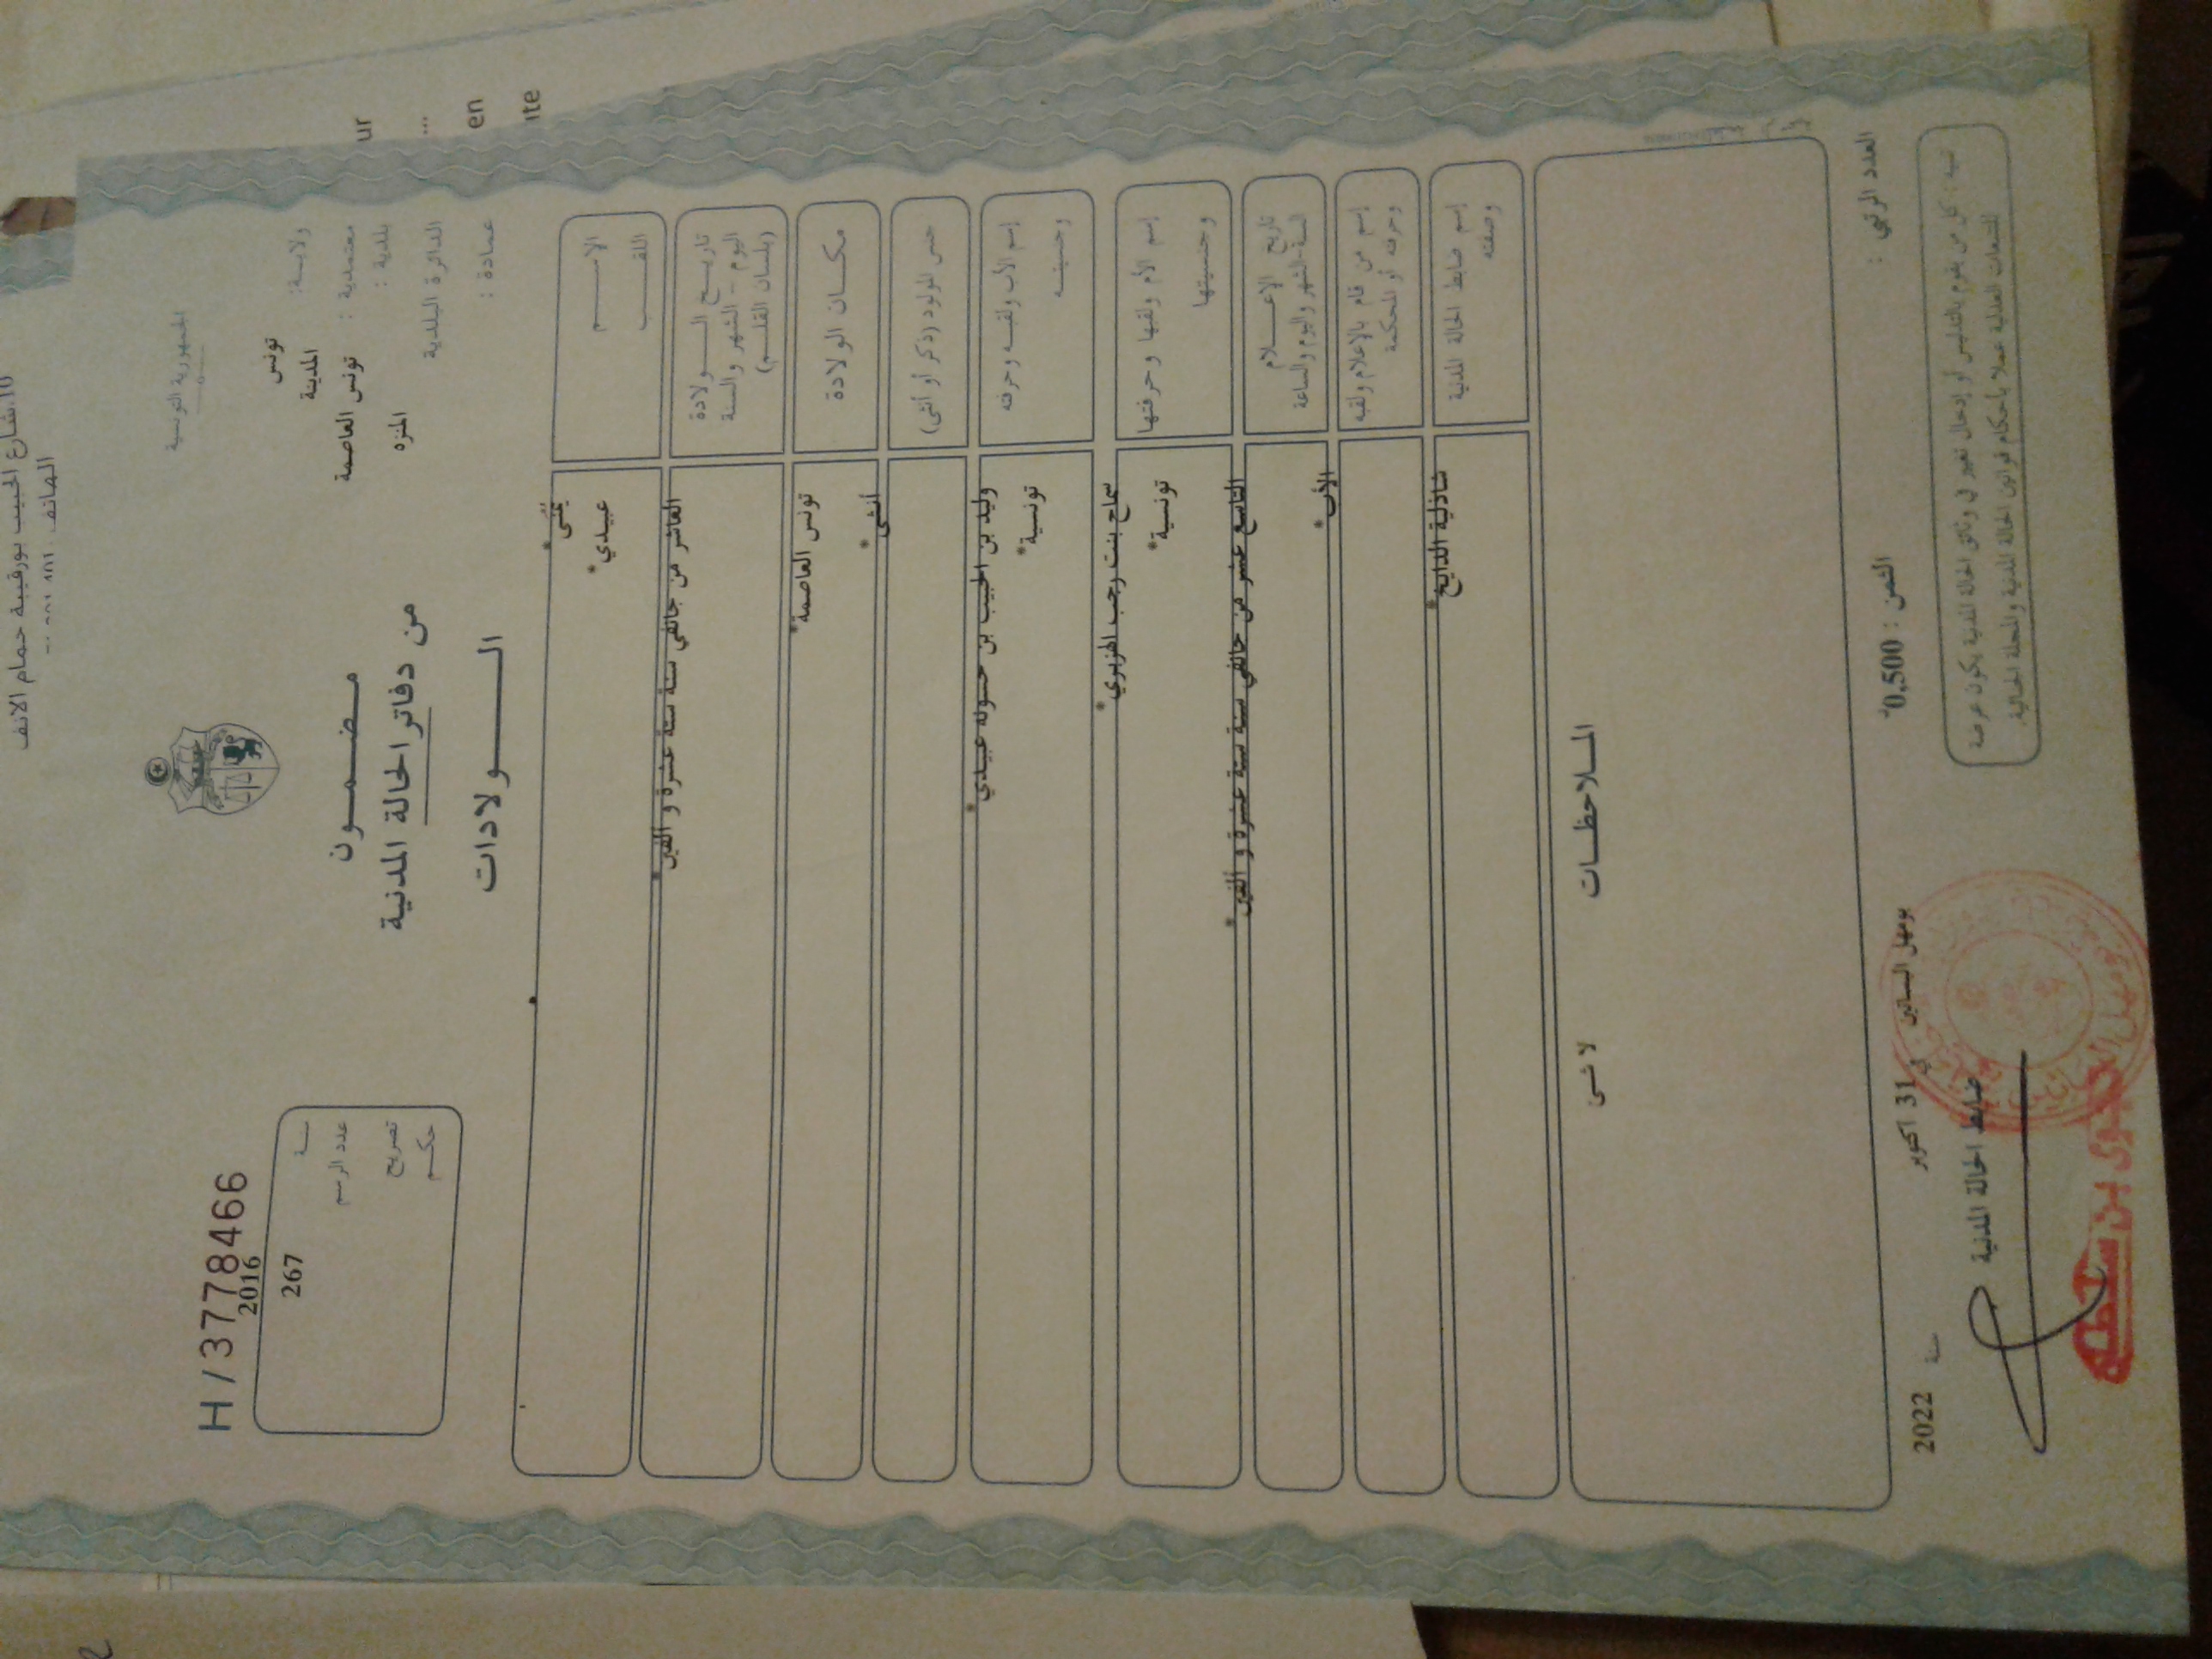 10 شارع الحبيب بورقيبة حمام الانف
ur
...
en
ite
الجمهورية التونسية
H/37778466
2016
سنة
267
عدد الرسم
تصريح
حكم
ولاية:
تونس
معتمدية :
المدينة
بلدية :
تونس العاصمة
الدائرة البلدية
المنزه
عمادة :
مضمون
من دفاتر الحالة المدنية
الولادات
الاسم
*يمنى
اللقب
*عبيدي
تاريخ الولادة
اليوم - الشهر والسنة
(بلسان القلم)
*العاشر من جانفي سنة ستة عشرة و ألفين
مكان الولادة
*تونس العاصمة
جنس المولود (ذكر أو أنثى)
*أنثى
إسم الأب ولقبه وحرفته
*وليد بن الحبيب بن حسونة عبيدي
وجنسيته
*تونسية
إسم الأم ولقبها وحرفتها
*سماح بنت رجب الهزبري
وجنسيتها
*تونسية
تاريخ الإعلام
السنة والشهر واليوم والساعة
*التاسع عشر من جانفي سنة ستة عشرة و ألفين
إسم من قام بالإعلام ولقبه
وحرفته أو المحكمة
*الأب
إسم ضابط الحالة المدنية
وصفته
*شاذلية الدايخ
الملاحظات
لا شيء
العدد الرتبي :
الثمن : 0,500د
بومهل البساتين
في 31 أكتوبر
سنة
2022
ضابط الحالة المدنية
تنبيه : كل من يقوم بالتدليس أو إدخال تغيير في وثائق الحالة المدنية يكون عرضة
للتتبعات العدلية عملا بأحكام قوانين الحالة المدنية والمجلة الجنائية.